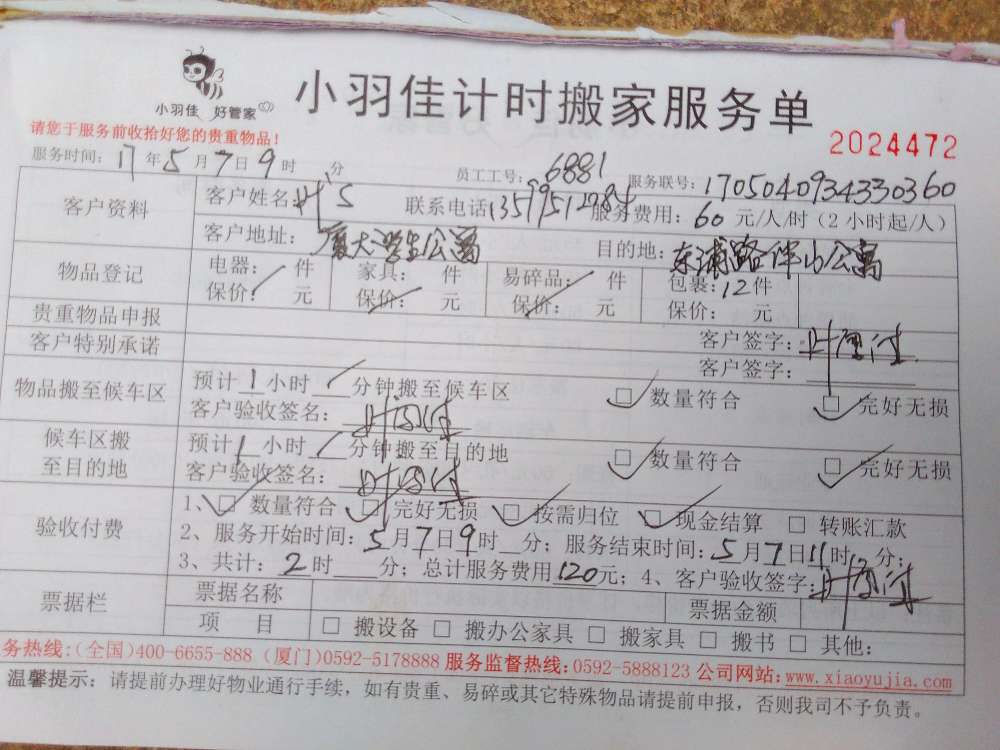 小羽佳 好管家
小羽佳计时搬家服务单
请您于服务前收拾好您的贵重物品！
2024472
服务时间：17年5月7日9时 分 员工工号：6881 服务联号：1705040934330360
客户资料 客户姓名：叶'S 联系电话 服务费用：60元/人/时（2小时起/人）
客户地址：厦大学生公寓 目的地：东浦路伴山公寓
物品登记 电器： 件 家具： 件 易碎品： 件 包裹：12件
保价： 元 保价： 元 保价： 元 保价： 元
贵重物品申报 客户签字：
客户特别承诺 客户签字：
物品搬至候车区 预计1小时 分钟搬至候车区 □数量符合 □完好无损
客户验收签名：
候车区搬至目的地 预计1小时 分钟搬至目的地 □数量符合 □完好无损
客户验收签名：
验收付费 1、□数量符合 □完好无损 □按需归位 □现金结算 □转账汇款
2、服务开始时间：5月7日9时 分；服务结束时间：5月7日11时 分；
3、共计：2时 分；总计服务费用120元；4、客户验收签字：
票据栏 票据名称 票据金额
项 目 □搬设备 □搬办公家具 □搬家具 □搬书 □其他：
务热线：（全国）400-6655-888（厦门）0592-5178888 服务监督热线：0592-5888123 公司网站：www.xiaoyujia.com
温馨提示：请提前办理好物业通行手续，如有贵重、易碎或其它特殊物品请提前申报，否则我司不予负责。